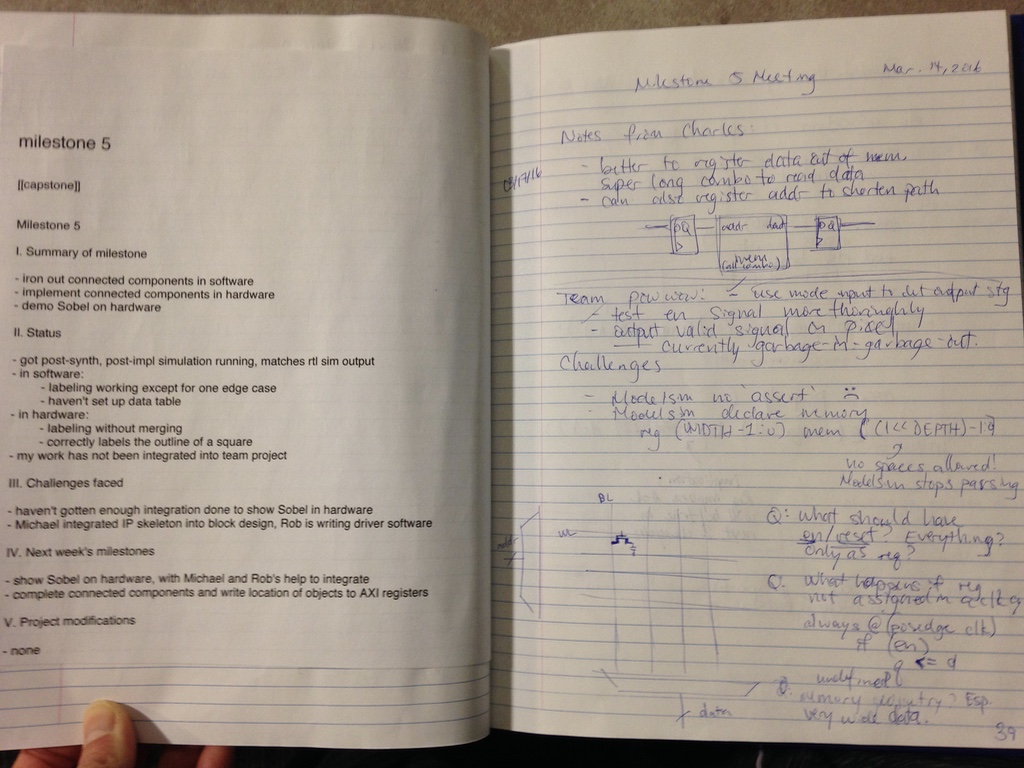 milestone 5
[[capstone]]
Milestone 5
I. Summary of milestone
- iron out connected components in software
- implement connected components in hardware
- demo Sobel on hardware
II. Status
- got post-synth, post-impl simulation running, matches rtl sim output
- in software:
- labeling working except for one edge case
- haven't set up data table
- in hardware:
- labeling without merging
- correctly labels the outline of a square
- my work has not been integrated into team project
III. Challenges faced
- haven't gotten enough integration done to show Sobel in hardware
- Michael integrated IP skeleton into block design, Rob is writing driver software
IV. Next week's milestones
- show Sobel on hardware, with Michael and Rob's help to integrate
- complete connected components and write location of objects to AXI registers
V. Project modifications
- none
Mar. 14, 2016
Milestone 5 Meeting
Notes from Charles:
- better to register data out of mem,
03/17/16
super long combo to read data
- can also register addr to shorten path
DQ addr dad DQ
mem
(all combo)
Team powwow: - use mode input to output stg
- test en signal more thoroughly
- output valid signal on pixel
- currently garbage-in-garbage-out.
Challenges
- Modelsim no 'assert' :(
- Modelsim declare memory
reg (WIDTH-1:0) mem ((1<<DEPTH)-1:0
no spaces allowed!
Modelsim stops parsing
BL
WL
addr
data
Q: What should have
en/reset? Everything?
only as reg?
Q. What happens if reg
not assigned in a clk cy
always @ (posedge clk)
if (en)
q <= d
undefined
Q. memory geometry? Esp.
very wide data.
39